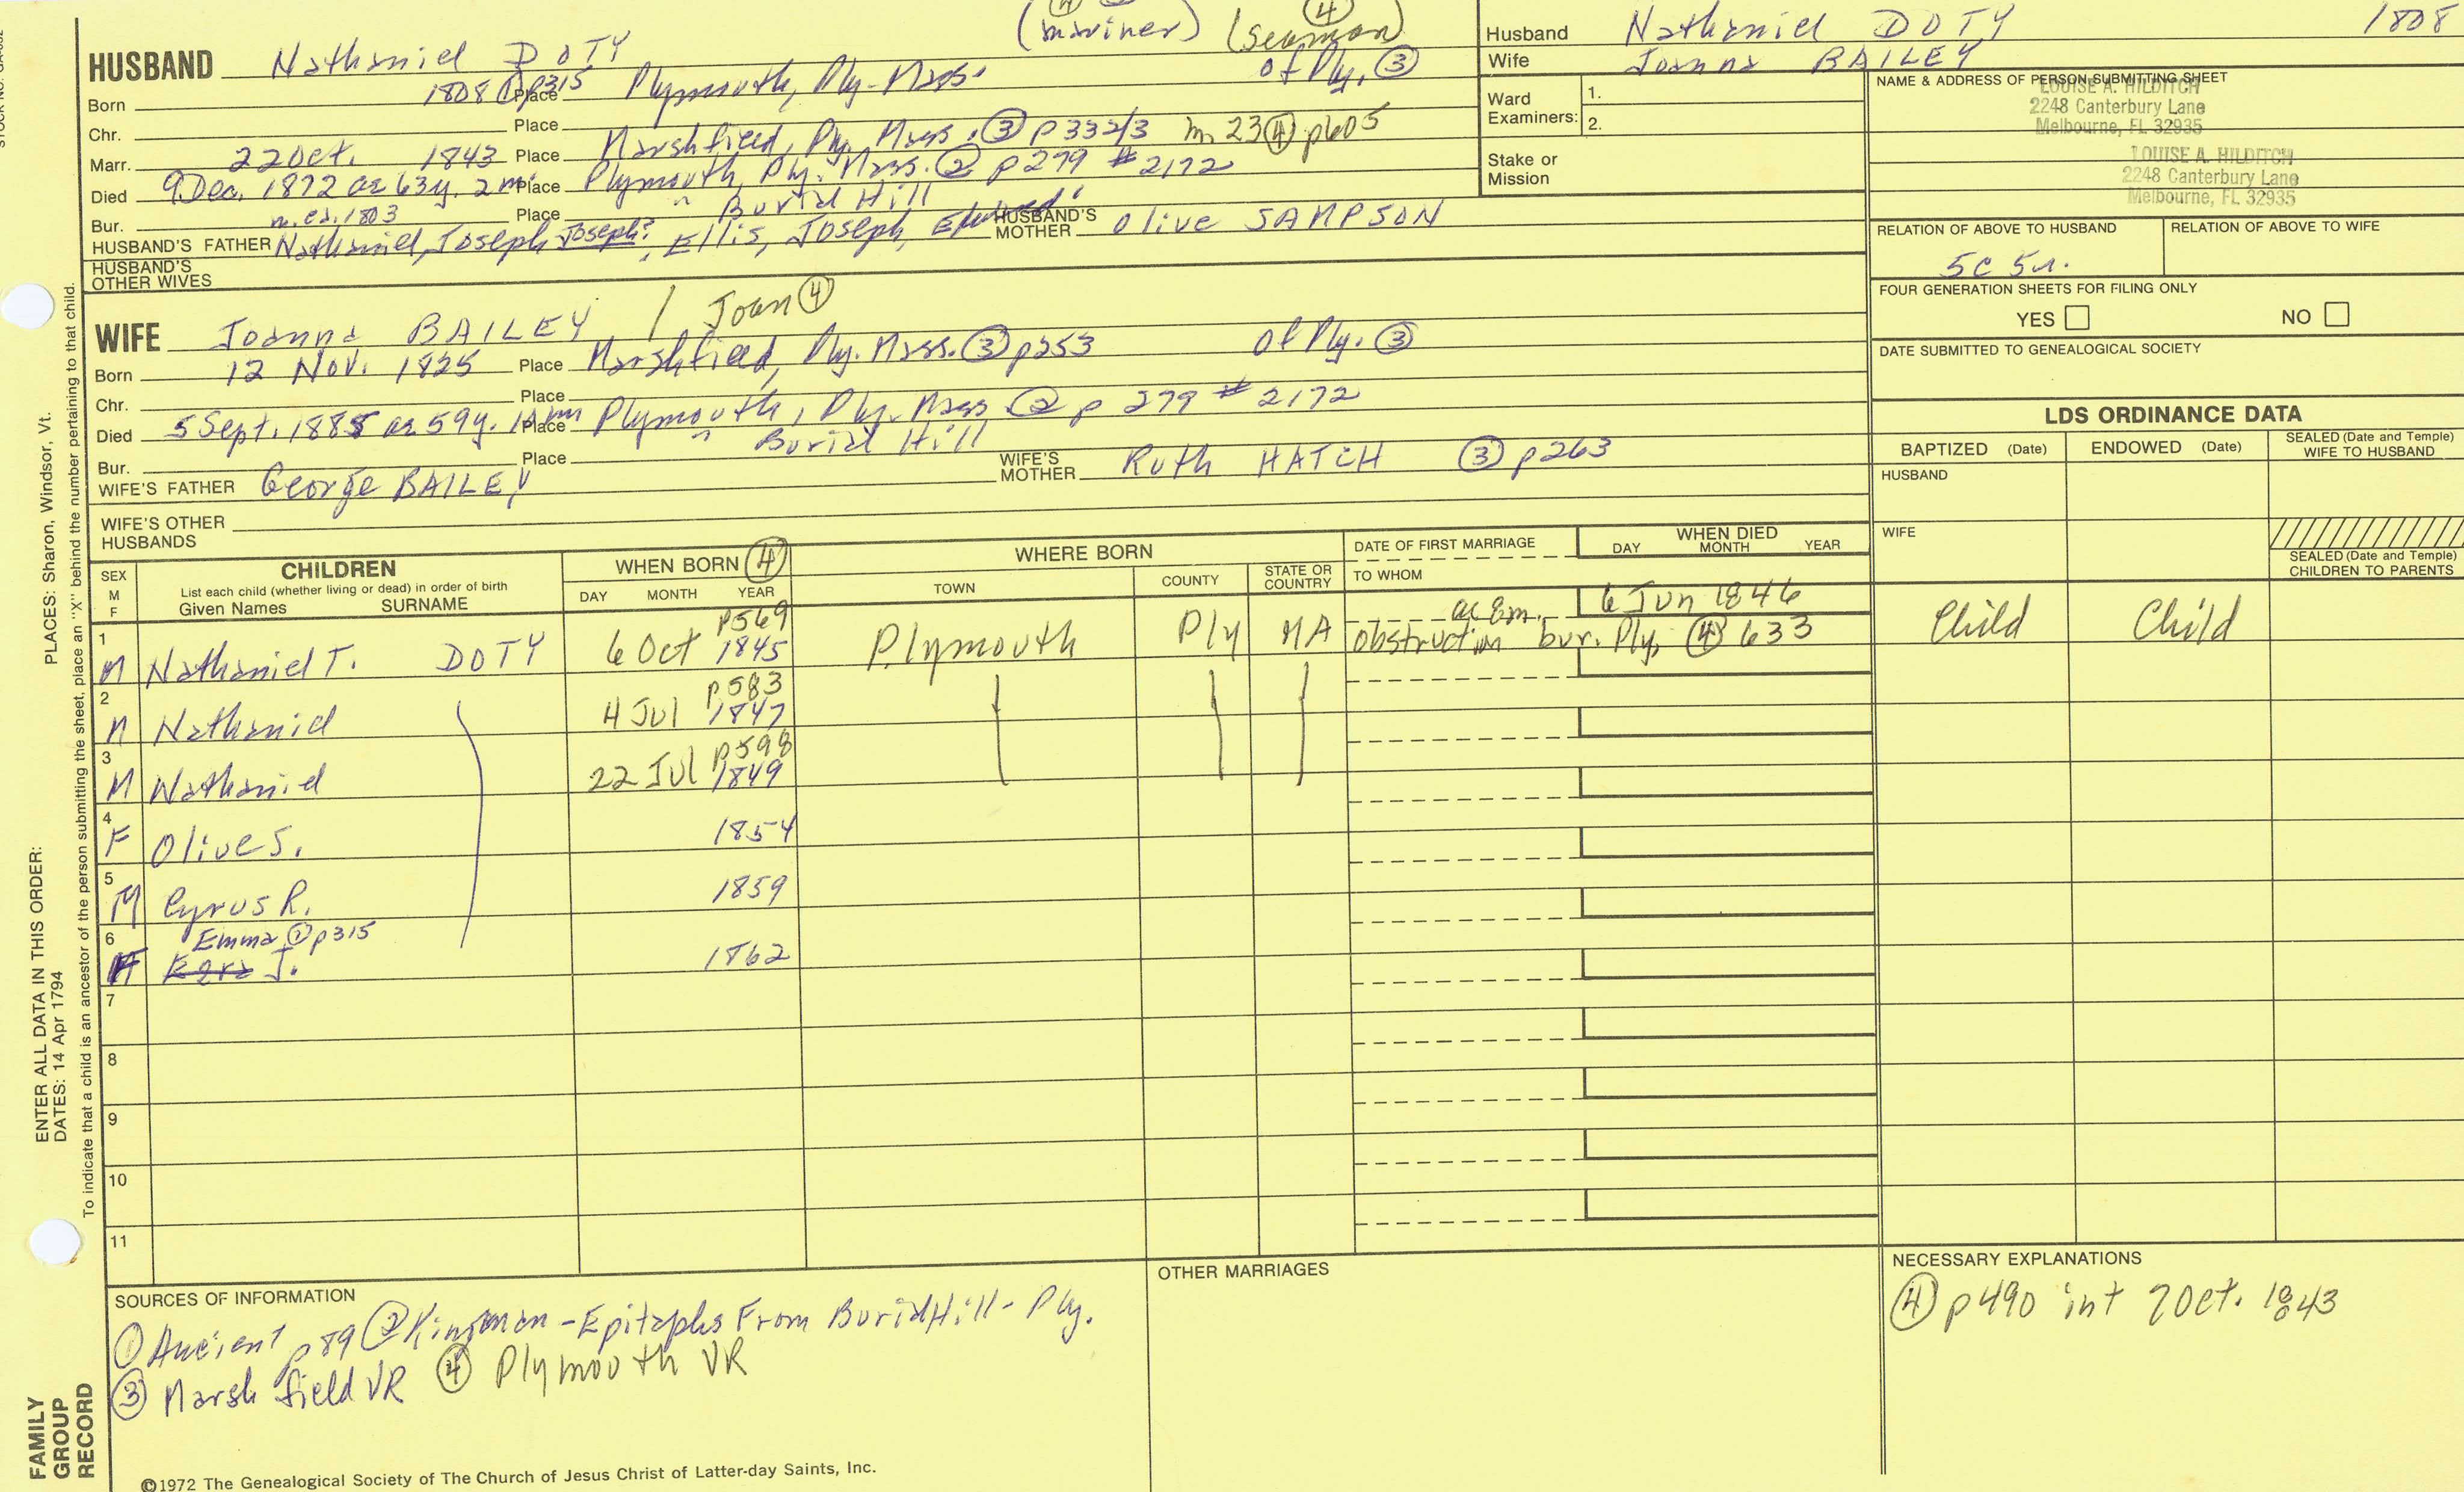 (mariner) (seaman) ④
HUSBAND Nathaniel DOTY of Ply. ③
Born 1808 ① p315 Place Plymouth, Ply. Mass.
Chr. Place
Marr. 22 Oct. 1843 Place Marshfield, Ply. Mass. ③ p 332/3 m 23 ④ p605
Died 9 Dec. 1872 ae 63y. 2m. Place Plymouth, Ply. Mass. ② p 279 # 2172
Bur. Place " Burial Hill
HUSBAND'S FATHER Nathaniel, Joseph, Joseph?, Ellis, Joseph, Edward
HUSBAND'S MOTHER Olive SAMPSON
HUSBAND'S OTHER WIVES
WIFE Joanna BAILEY / Joan ④
Born 12 Nov. 1825 Place Marshfield, Ply. Mass. ③ p253 of Ply. ③
Chr. Place
Died 5 Sept. 1885 ae 59y. Place Plymouth, Ply. Mass ② p 279 # 2172
Bur. Place " Burial Hill
WIFE'S FATHER George BAILEY
WIFE'S MOTHER Ruth HATCH ③ p263
WIFE'S OTHER HUSBANDS
Husband Nathaniel DOTY 1808
Wife Joanna BAILEY
Ward Examiners: 1.
2.
Stake or Mission
NAME & ADDRESS OF PERSON SUBMITTING SHEET
LOUISE A. HILDITCH
2248 Canterbury Lane
Melbourne, FL 32935
LOUISE A. HILDITCH
2248 Canterbury Lane
Melbourne, FL 32935
RELATION OF ABOVE TO HUSBAND
RELATION OF ABOVE TO WIFE
5C 5r.
FOUR GENERATION SHEETS FOR FILING ONLY
YES NO
DATE SUBMITTED TO GENEALOGICAL SOCIETY
LDS ORDINANCE DATA
BAPTIZED (Date) ENDOWED (Date) SEALED (Date and Temple) WIFE TO HUSBAND
HUSBAND
WIFE
SEALED (Date and Temple) CHILDREN TO PARENTS
SEX M F
CHILDREN
List each child (whether living or dead) in order of birth
Given Names SURNAME
WHEN BORN ④
DAY MONTH YEAR
WHERE BORN
TOWN COUNTY STATE OR COUNTRY
DATE OF FIRST MARRIAGE
TO WHOM
WHEN DIED
DAY MONTH YEAR
1 M Nathaniel T. DOTY 6 Oct p569 1845 Plymouth Ply MA ae 8m. 6 Jun 1846
obstruction bur. Ply. ④ 633 Child Child
2 M Nathaniel 4 Jul p583 1847
3 M Nathaniel 22 Jul p598 1849
4 F Olive S. 1854
5 M Cyrus R. 1859
6 F Emma ① p315
Ezra J. 1862
7
8
9
10
11
SOURCES OF INFORMATION
① Ancient p89 ② Kingman - Epitaphs From Burial Hill - Ply.
③ Marshfield VR ④ Plymouth VR
OTHER MARRIAGES
NECESSARY EXPLANATIONS
④ p490 int 7 Oct. 1843
©1972 The Genealogical Society of The Church of Jesus Christ of Latter-day Saints, Inc.
FAMILY GROUP RECORD
ENTER ALL DATA IN THIS ORDER:
DATES: 14 Apr 1794
PLACES: Sharon, Windsor, Vt.
To indicate that a child is an ancestor of the person submitting the sheet, place an "X" behind the number pertaining to that child.